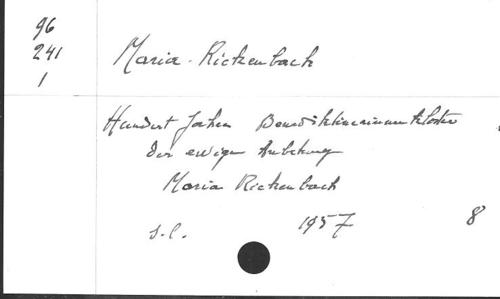 96
241
1
Maria-Rickenbach
Hundert Jahre Benediktinerinnenkloster
der ewigen Anbetung
Maria Rickenbach
s.l. 1957 8